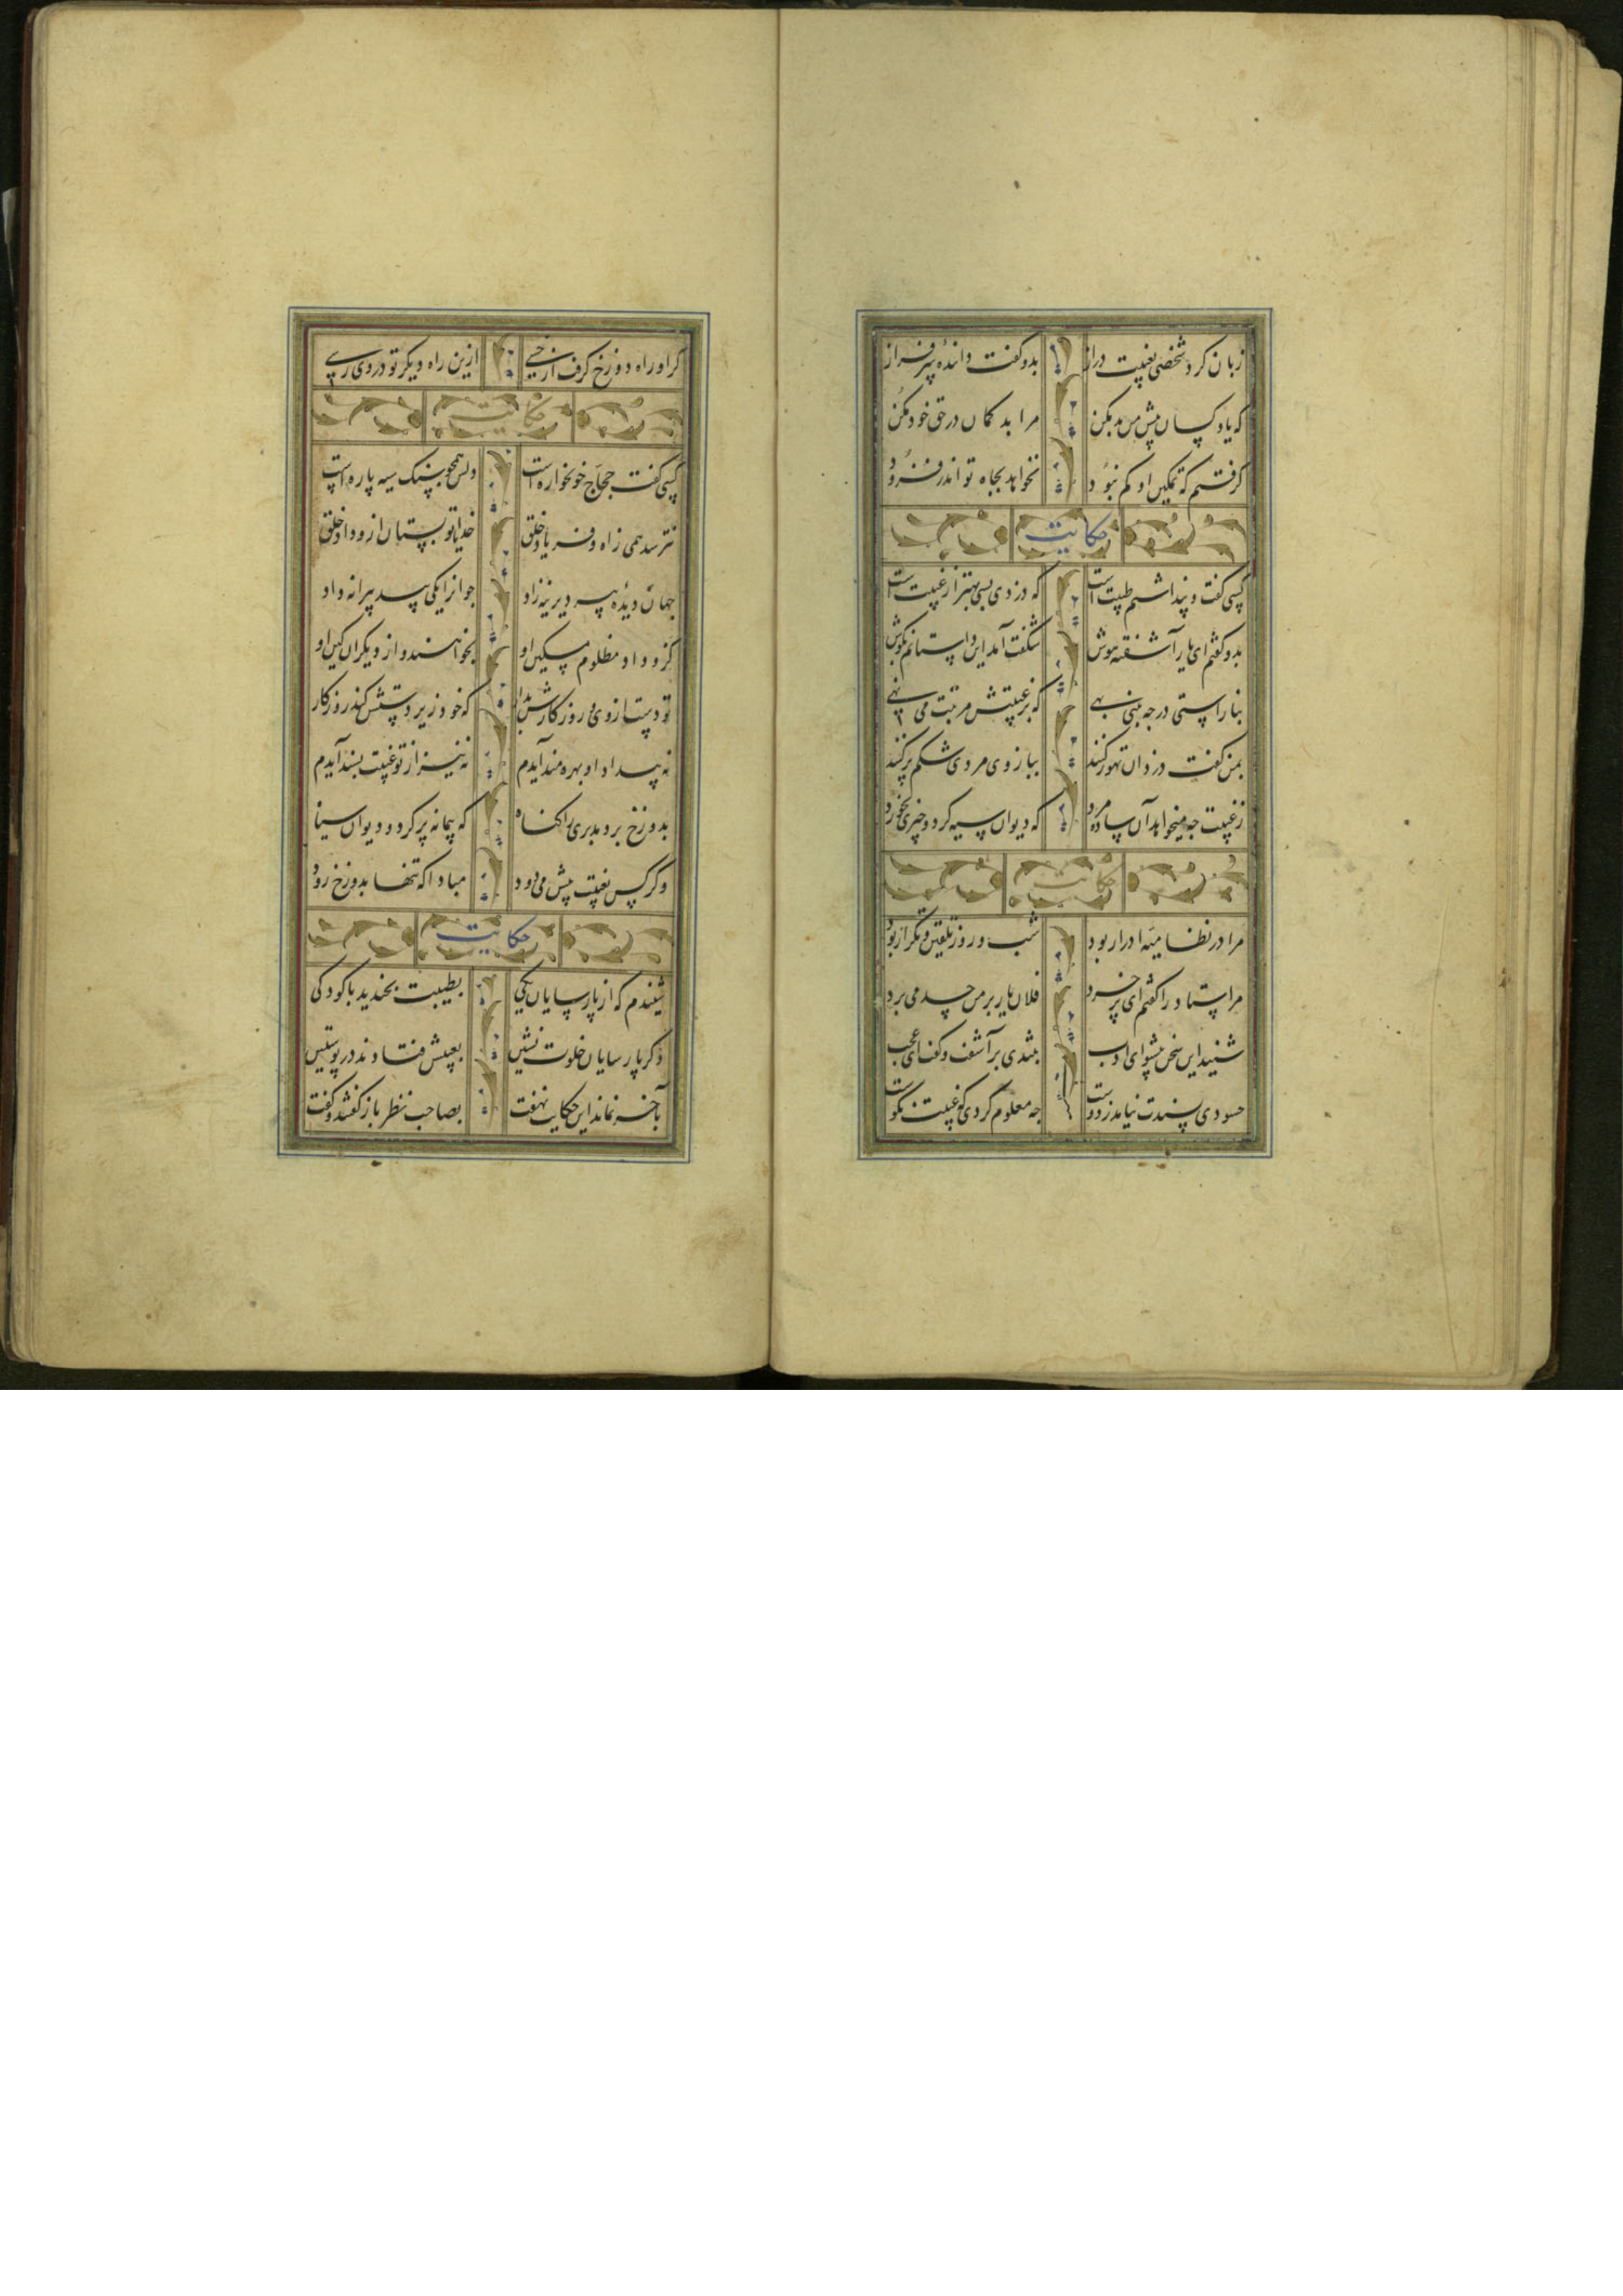 زبان کرد شخصی بغیبت دراز بدو گفت داننده سرفراز
که یاد کسان پیش من بد مکن مرا بد کمان در حق خود مکن
کرفتم که تمکین او کم نبود نخواهد بجاه تو اندر فزود
حکایت
کسی گفت و پنداشتم طیبت است که دزدی بسی بهتر از غیبت است
بدو گفتم ای یار آشفته هوش شگفت آمد این داستانم بگوش
بناراستی در چه بینی بهی که بر غیبتش مرتبت می نهی
بمن گفت دزدان تهور کنند ببازوی مردی شکم پر کنند
ز غیبت چه میخواهد آن ساده مرد که دیوان سیه کرد و چیزی نخورد
حکایت
مرا در نظامیه ادرار بود شب و روز تلقین و تکرار بود
مر استاد را گفتم ای پر خرد فلان یار بر من حسد می برد
شنید این سخن پیشوای ادب بتندی برآشفت و گفت ای عجب
حسودی پسندت نیامد ز دوست چه معلوم کردی که غیبت نکوست
گر او راه دوزخ گرفت از خسی ازین راه دیگر تو در وی رسی
حکایت
کسی گفت حجاج خونخواره است دلش همچو سنگ سیه پاره است
نترسد همی ز آه و فریاد خلق خدایا تو بستان ازو داد خلق
جهان دیدهٔ پیر دیرینه زاد جوان را یکی پند پیرانه داد
کزو داد مظلوم مسکین او بخواهند و از دیگران کین او
تو دست از وی و روزگارش بدار که خود زیر دستش کند روزگار
نه بیداد او بهره مند آیدم نه نیز از تو غیبت پسند آیدم
بدوزخ برد مدبری را گناه که پیمانه پر کرد و دیوان سیاه
دگر کس بغیبت پیش می دود مبادا که تنها بدوزخ رود
حکایت
شنیدم که از پارسایان یکی بطیبت بخندید با کودکی
دگر پارسایان خلوت نشین بعیبش فتادند در پوستین
بآخر نماند این حکایت نهفت بصاحب نظر باز گفتند و گفت